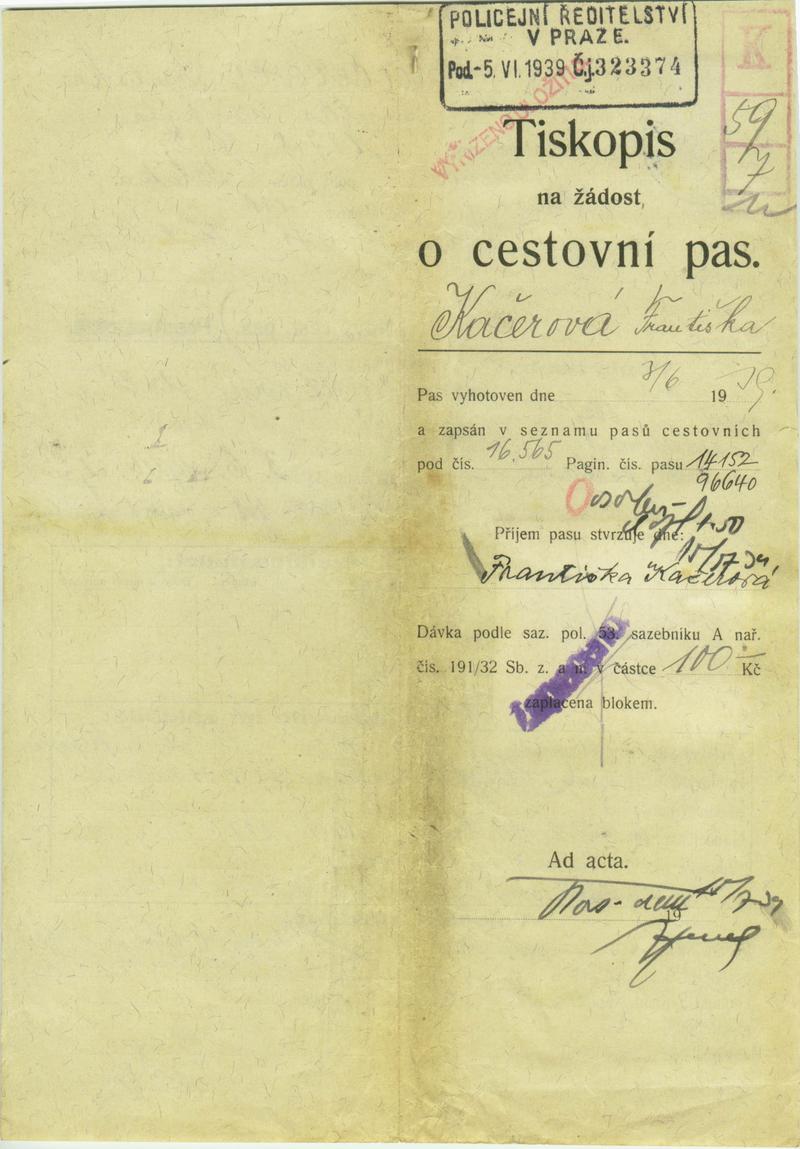 POLICEJNÍ ŘEDITELSTVÍ
V PRAZE.
Pod.-5. VI. 1939 Čj. 323374
K
59
7
Tiskopis
na žádost
o cestovní pas.
Kačerová Františka
Pas vyhotoven dne 7/6 1939.
a zapsán v seznamu pasů cestovních
pod čís. 16.565 Pagin. čís. pasu 14152
96640
Příjem pasu stvrzuje dne:
Františka Kačerová
Dávka podle saz. pol. 53. sazebníku A nař.
čís. 191/32 Sb. z. a n. v částce 100- Kč
zaplacena blokem.
Ad acta.
19